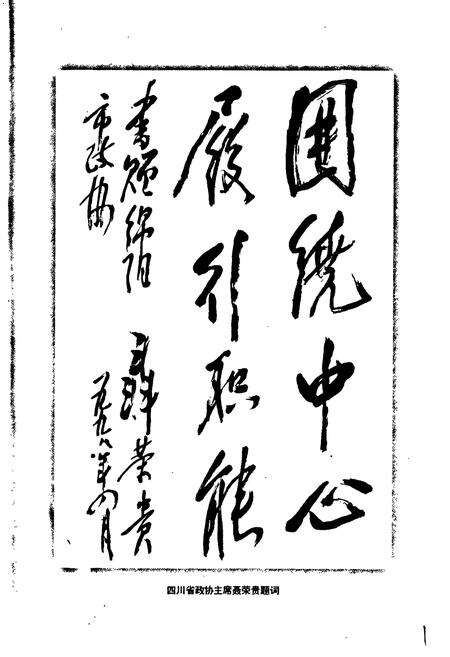 围绕中心
履行职能
书赠绵阳
市政协
聂荣贵
一九九八年四月
四川省政协主席聂荣贵题词